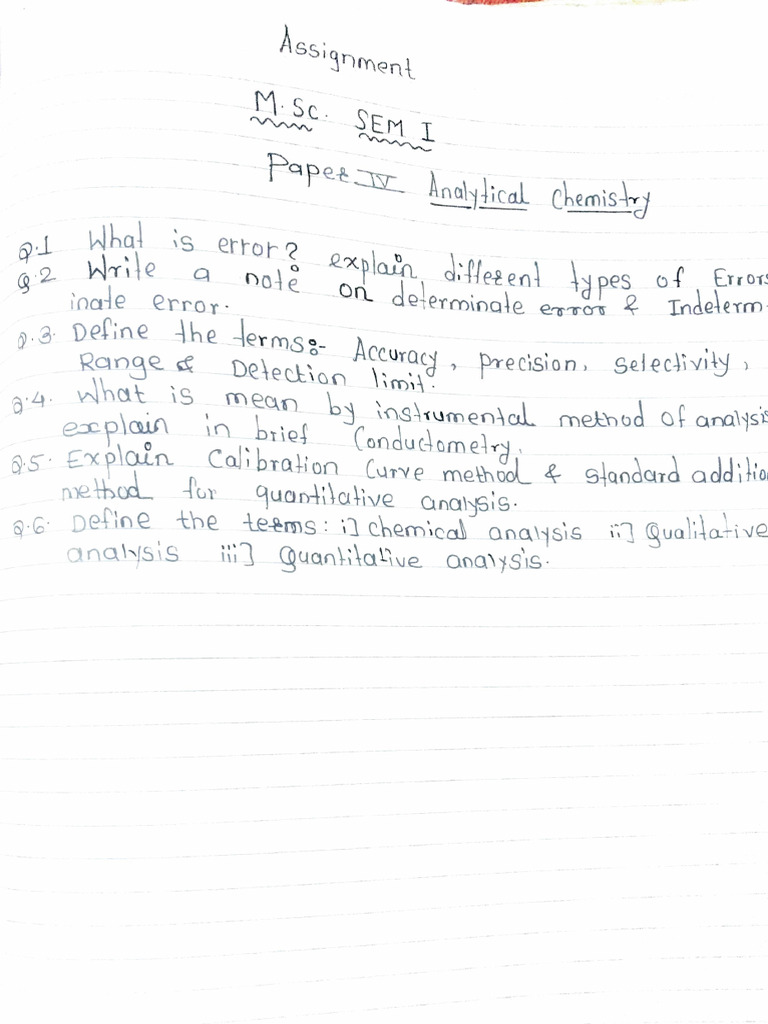 Assignment
M.Sc. SEM I
Paper IV Analytical Chemistry
Q.1 What is error? explain different types of Errors
Q.2 Write a note on determinate error & Indeterm-
inate error.
Q.3 Define the terms:- Accuracy, precision, selectivity,
Range & Detection limit.
Q.4. What is mean by instrumental method of analysis
explain in brief Conductometry.
Q.5. Explain Calibration Curve method & standard addition
method for quantitative analysis.
Q.6. Define the terms: i] chemical analysis ii] Qualitative
analysis iii] Quantitative analysis.